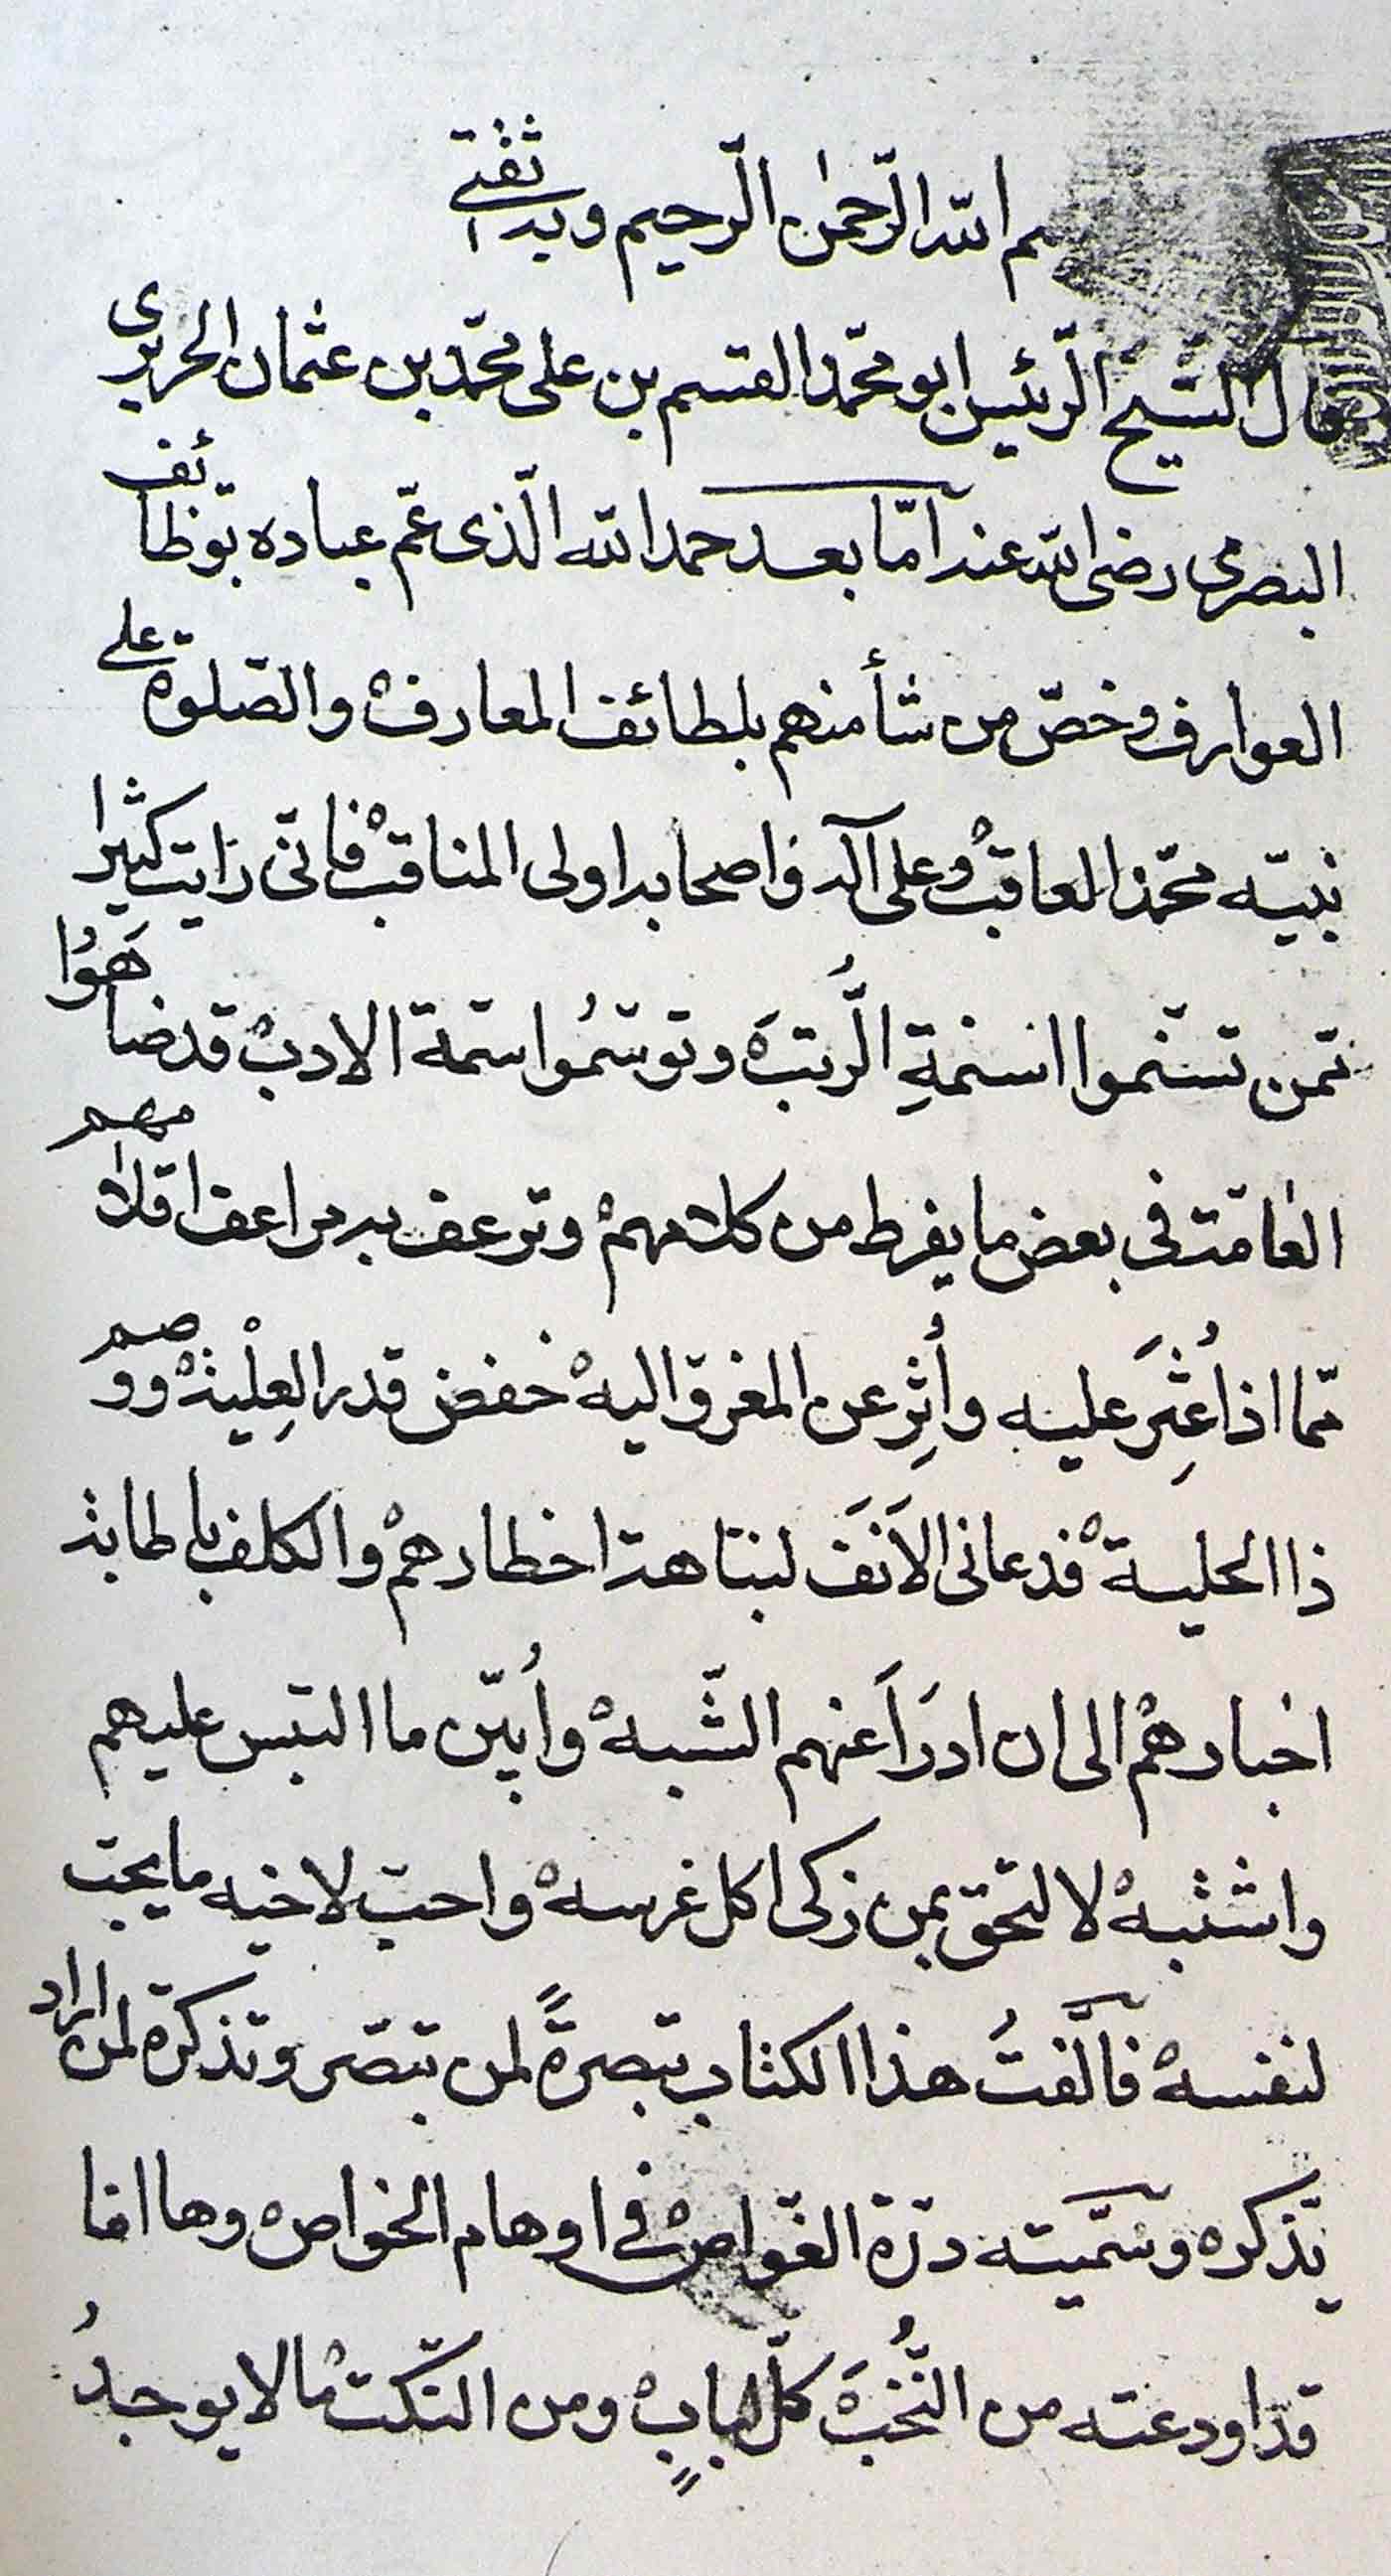 بسم الله الرّحمٰن الرّحيم وبه ثقتى
قال الشّيخ الرّئيس ابو محمّد القسم بن على محمّد بن عثمان الحريرى
البصرى رضى الله عنه آمّا بعد حمد الله الّذى عمّ عباده بوظائف
العوارف وخصّ من شأ منهم بلطائف المعارف والصّلوة على
نبيّه محمّد العاقب وعلى آله واصحابه اولى المناقب فانّى رايت كثيرا
ممن تسنّموا اسنمةِ الرُّتبَ وتوسّمُوا بسمة الادب قد ضاهَوُا
العامّة فى بعض ما يفرط من كلامهم وترعف به مراعف اقلامهم
ممّا اذا عُثِرَ عليه وأُثِر عن المعزوّ اليه خفض قدر العِلْية ووصم
ذا الحلية فدعانى الاَنَفَ لنباهة اخطارهم والكلف باطابة
اخبارهم الى ان ادرَاَ عنهم الشّبه وأُبيّن ما التبس عليهم
واشتبه لالتحق بمن زكى اكل غرسه واحبّ لاخيه ما يحبّ
لنفسه فآلّفتُ هذا الكتاب تبصرةً لمن تبصّر وتذكرة لمن اراد
يذكره وسمّيته درّة الغوّاص فى اوهام الخواص وها انا
قد اودعته من النُّخبَ كلّ لبابٍ ومن النّكت ما لا يوجدُ